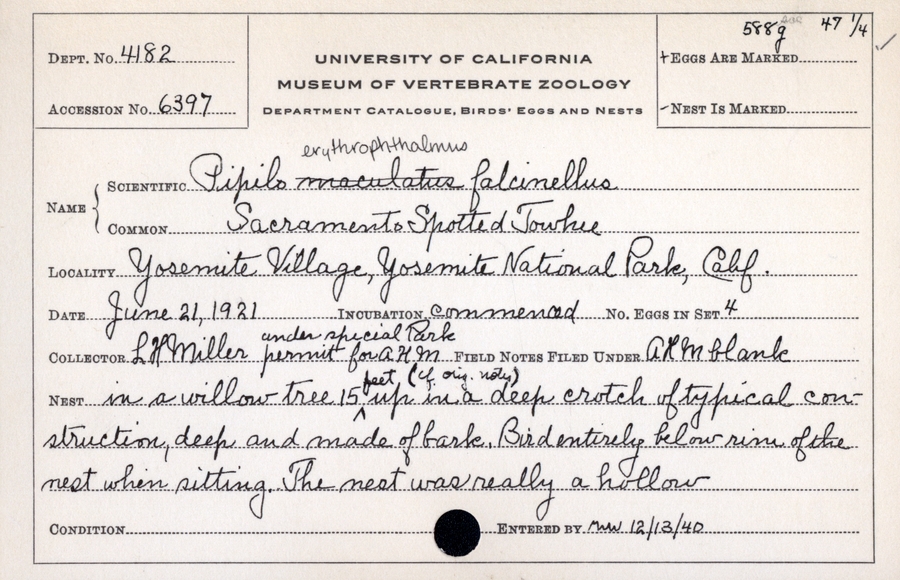 588g 47 1/4
DEPT. NO. 4182
UNIVERSITY OF CALIFORNIA
+EGGS ARE MARKED
MUSEUM OF VERTEBRATE ZOOLOGY
ACCESSION NO. 6397
DEPARTMENT CATALOGUE, BIRDS' EGGS AND NESTS
-NEST IS MARKED
erythrophthalmus
NAME { SCIENTIFIC Pipilo maculatus falcinellus
COMMON Sacramento Spotted Towhee
LOCALITY Yosemite Village, Yosemite National Park, Calif.
DATE June 21, 1921 INCUBATION commenced NO. EGGS IN SET 4
under special Park
COLLECTOR L H Miller permit for A H M FIELD NOTES FILED UNDER A H M blank
feet (cf. orig. notes)
NEST in a willow tree 15 ^ up in a deep crotch of typical con-
struction, deep and made of bark. Bird entirely below rim of the
nest when sitting. The nest was really a hollow
CONDITION ENTERED BY 12/13/40